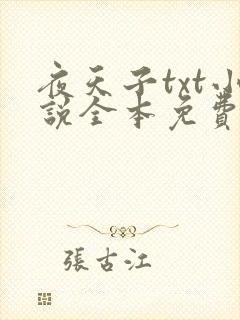 夜天子txt小
說全本免費
張古江